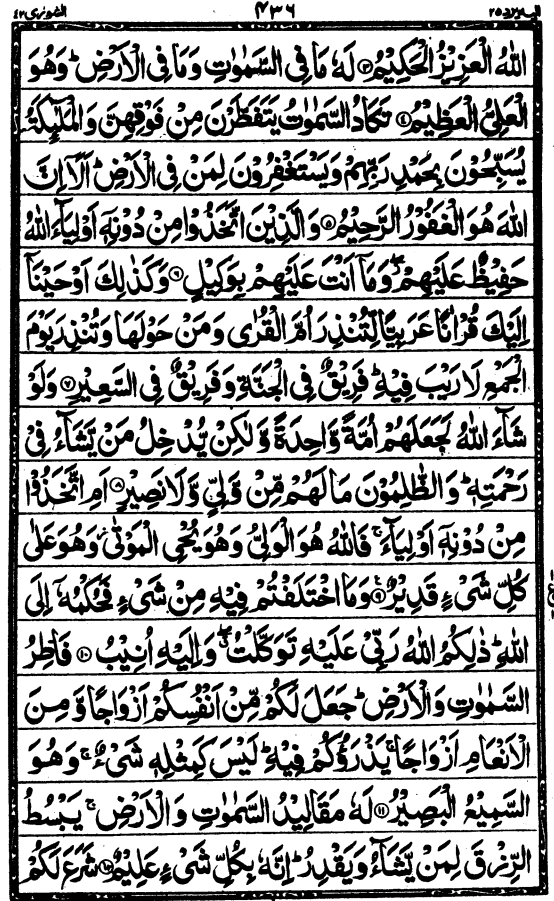 اليه يرد ٢٥ ٤٣٦ الشورى ٤٢
اللّٰهُ الْعَزِيْزُ الْحَكِيْمُ ۝٣ لَهٗ مَا فِى السَّمٰوٰتِ وَمَا فِى الْاَرْضِ ؕ وَهُوَ
الْعَلِىُّ الْعَظِيْمُ ۝٤ تَكَادُ السَّمٰوٰتُ يَتَفَطَّرْنَ مِنْ فَوْقِهِنَّ وَالْمَلٰٓئِكَةُ
يُسَبِّحُوْنَ بِحَمْدِ رَبِّهِمْ وَيَسْتَغْفِرُوْنَ لِمَنْ فِى الْاَرْضِ ؕ اَلَاۤ اِنَّ
اللّٰهَ هُوَ الْغَفُوْرُ الرَّحِيْمُ ۝٥ وَالَّذِيْنَ اتَّخَذُوْا مِنْ دُوْنِهٖۤ اَوْلِيَآءَ اللّٰهُ
حَفِيْظٌ عَلَيْهِمْ ۖ وَمَاۤ اَنْتَ عَلَيْهِمْ بِوَكِيْلٍ ۝٦ وَكَذٰلِكَ اَوْحَيْنَاۤ
اِلَيْكَ قُرْاٰنًا عَرَبِيًّا لِّتُنْذِرَ اُمَّ الْقُرٰى وَمَنْ حَوْلَهَا وَتُنْذِرَ يَوْمَ
الْجَمْعِ لَا رَيْبَ فِيْهِ ؕ فَرِيْقٌ فِى الْجَنَّةِ وَفَرِيْقٌ فِى السَّعِيْرِ ۝٧ وَلَوْ
شَآءَ اللّٰهُ لَجَعَلَهُمْ اُمَّةً وَّاحِدَةً وَّلٰكِنْ يُّدْخِلُ مَنْ يَّشَآءُ فِىْ
رَحْمَتِهٖ ؕ وَالظّٰلِمُوْنَ مَا لَهُمْ مِّنْ وَّلِىٍّ وَّلَا نَصِيْرٍ ۝٨ اَمِ اتَّخَذُوْا
مِنْ دُوْنِهٖۤ اَوْلِيَآءَ ۚ فَاللّٰهُ هُوَ الْوَلِىُّ وَهُوَ يُحْىِ الْمَوْتٰى ۫ وَهُوَ عَلٰى
كُلِّ شَىْءٍ قَدِيْرٌ ۝٩ وَمَا اخْتَلَفْتُمْ فِيْهِ مِنْ شَىْءٍ فَحُكْمُهٗۤ اِلَى
اللّٰهِ ؕ ذٰلِكُمُ اللّٰهُ رَبِّىْ عَلَيْهِ تَوَكَّلْتُ ۖ وَاِلَيْهِ اُنِيْبُ ۝١٠ فَاطِرُ
السَّمٰوٰتِ وَالْاَرْضِ ؕ جَعَلَ لَكُمْ مِّنْ اَنْفُسِكُمْ اَزْوَاجًا وَّمِنَ
الْاَنْعَامِ اَزْوَاجًا ۚ يَذْرَؤُكُمْ فِيْهِ ؕ لَيْسَ كَمِثْلِهٖ شَىْءٌ ۚ وَهُوَ
السَّمِيْعُ الْبَصِيْرُ ۝١١ لَهٗ مَقَالِيْدُ السَّمٰوٰتِ وَالْاَرْضِ ۚ يَبْسُطُ
الرِّزْقَ لِمَنْ يَّشَآءُ وَيَقْدِرُ ؕ اِنَّهٗ بِكُلِّ شَىْءٍ عَلِيْمٌ ۝١٢ شَرَعَ لَكُمْ